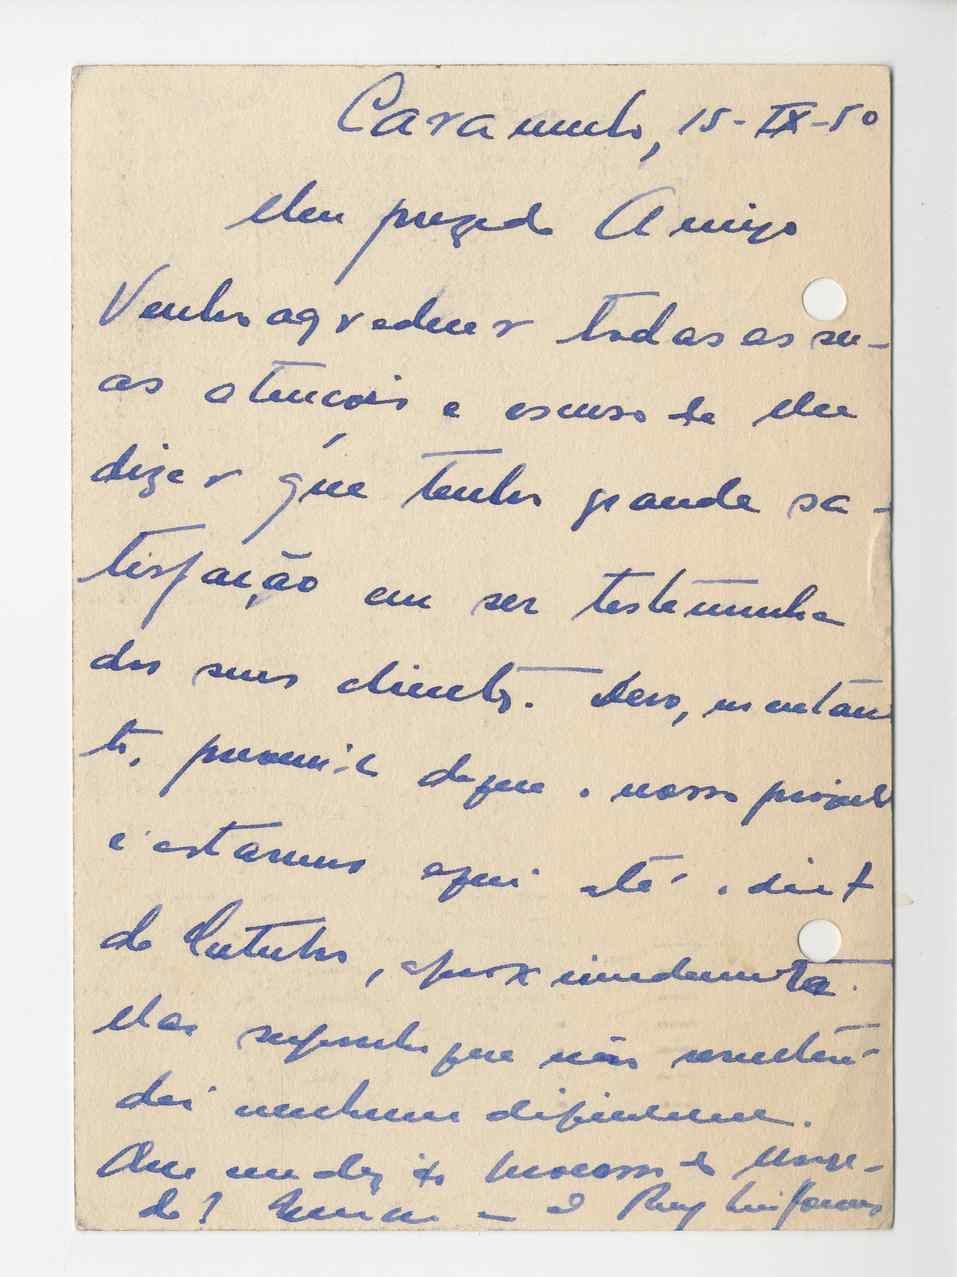 Caramulo, 15-IX-50
Meu prezado Amigo
Venho agradecer todas as su-
as atenções e escuso de lhe
dizer que tenho grande sa-
tisfação em ser testemunha
dos seus direitos. Devo, no entan-
to, preveni-lo de que o nosso
é estarmos aqui até o dia 7
de Outubro, aproximadamente.
Mas suponho que não resulta-
dai nenhum
Que me diz do processo do
do?